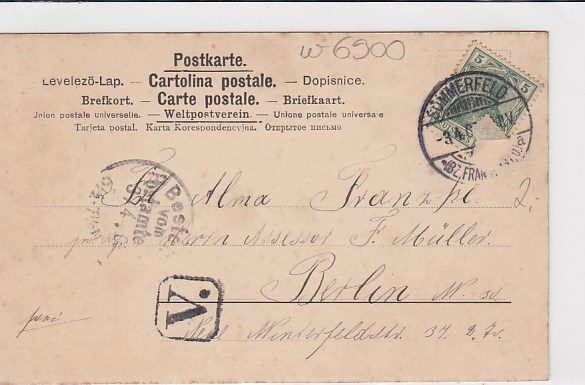 w 6900
Postkarte.
Levelezö-Lap. — Cartolina postale. — Dopisnice.
Brefkort. — Carte postale. — Briefkaart.
Union postale universelle. — Weltpostverein. — Unione postale universale
Tarjeta postal. Karta Korespondencyjna. Открытое письмо
5 5
SOMMERFELD
(BZ. FRANKF.
Bestellt
vom
Postamte
Frl. Alma
Herrn Assessor F. Müller.
Berlin W. 30
V.
Neue Winterfeldtstr. 37.